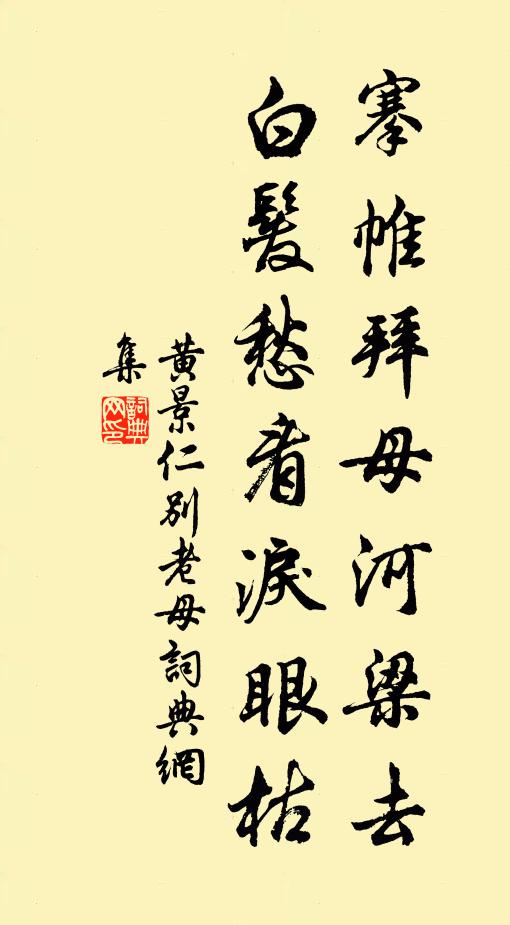 搴帷拜母河梁去
白髮愁看淚眼枯
黃景仁別老母詞典網
集
詞典網印